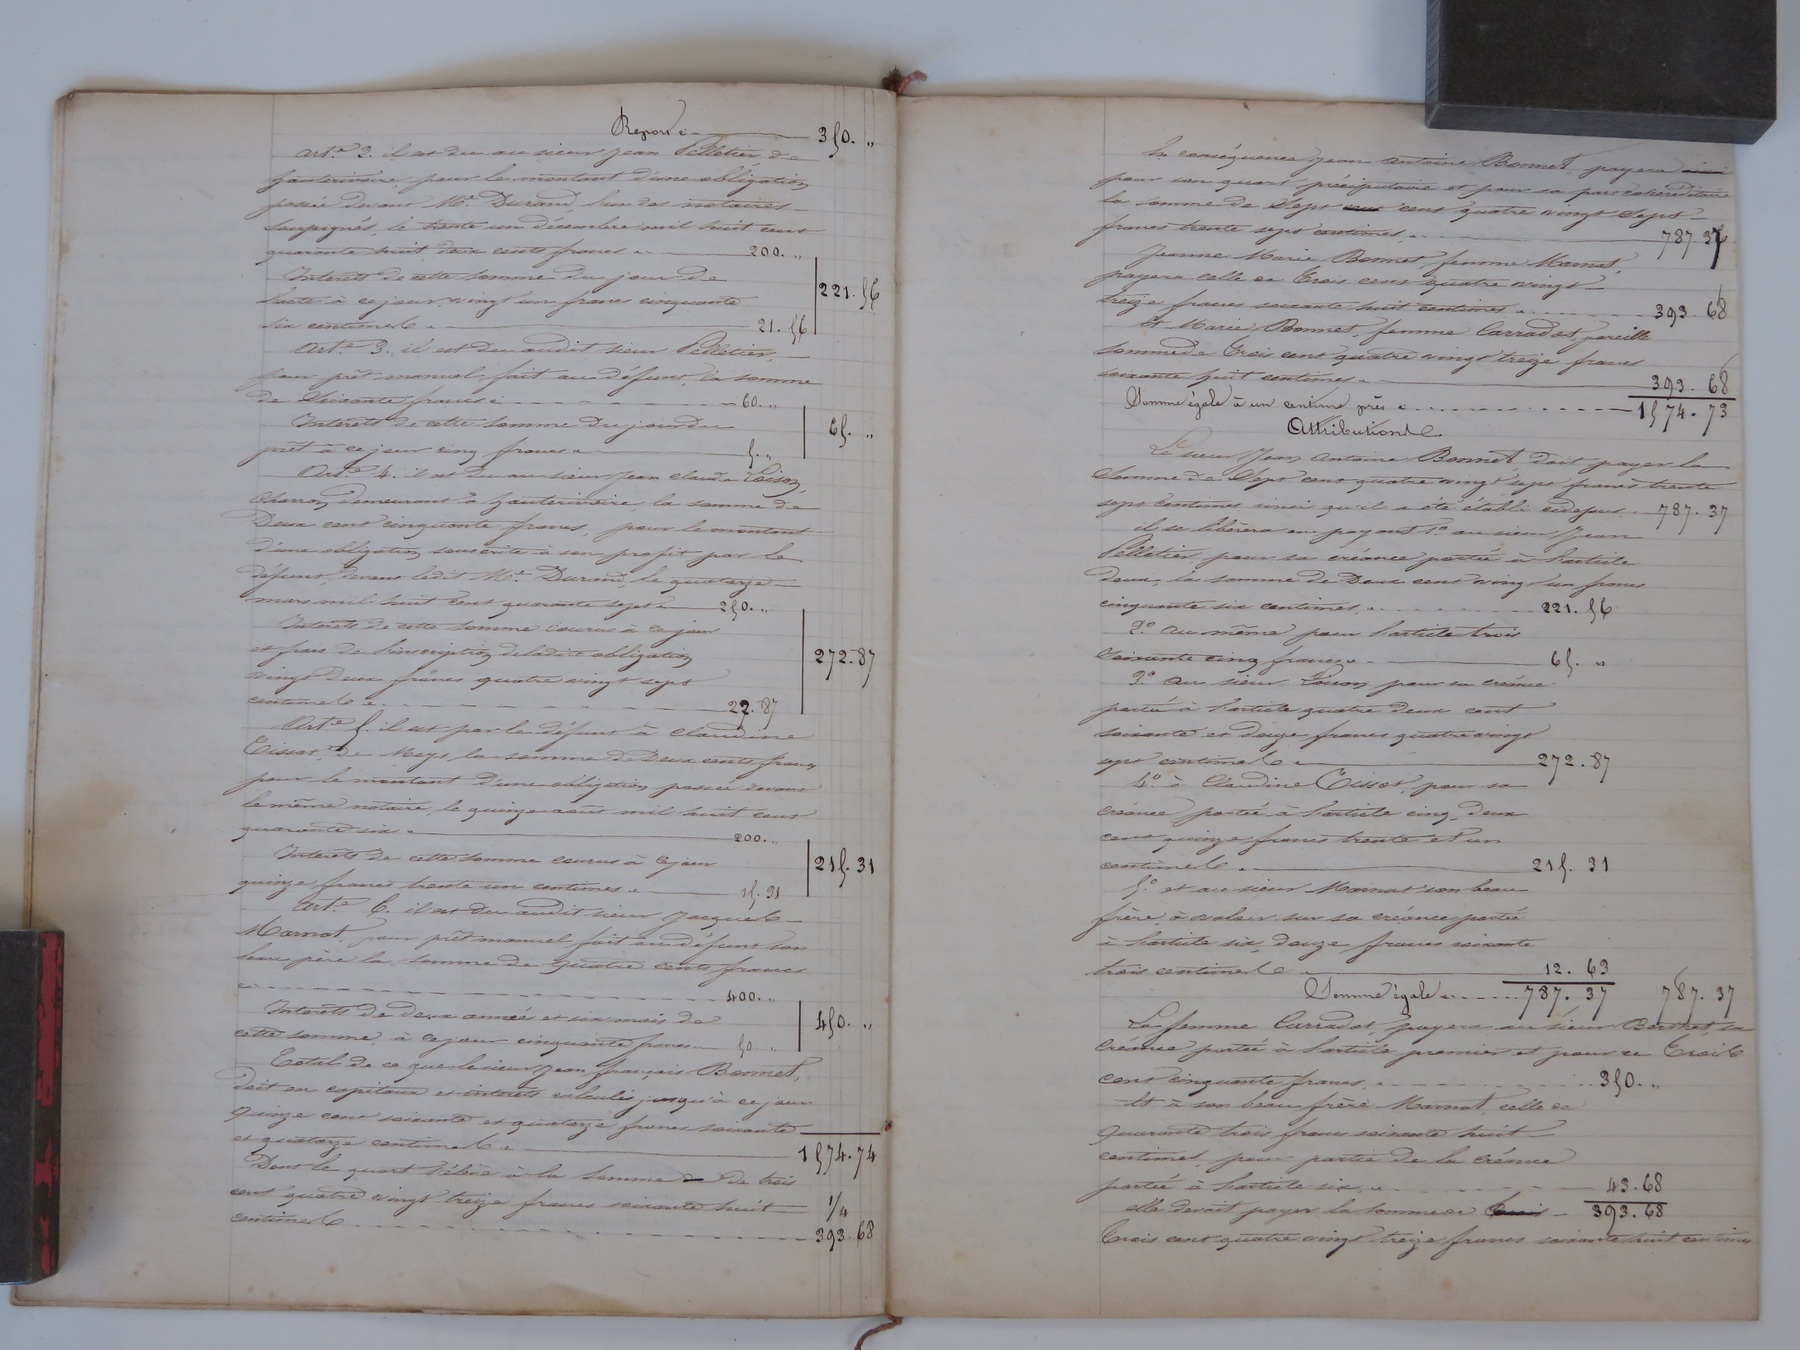 Report 350. "
Art.e 2. il est du au sieur Jean Pelletier de
hauterivoire, pour le montant d'une obligation
passée devant Me. Durand, l'un des notaires
soussignés, le trente un décembre mil huit cent
quarante huit, deux cents francs 200. "
Interets de cette somme du jour de
l'acte à ce jour, vingt un francs cinquante
six centimes 21. 56
221. 56
Art.e 3. il est du audit sieur Pelletier,
pour prêt manuel fait au défunt, la somme
de Soixante francs 60. "
Interets de cette somme du jour du
prêt à ce jour cinq francs 5. "
65. "
Art.e 4. il est du au sieur Jean Claude Loison,
charron, demeurant à hauterivoire, la somme de
Deux cent cinquante francs, pour le montant
d'une obligation souscrite à son profit par le
défunt, devant ledit Me. Durand, le quatorze
mars mil huit cent quarante sept 250. "
Interets de cette somme courus à ce jour
et frais de l'inscription de ladite obligation
vingt deux francs quatre vingt sept
centimes 22. 87
272. 87
Art.e 5. il est par le défunt à Claudine
Tissot, de Meys, la somme de Deux cents francs
pour le montant d'une obligation passée devant
le même notaire, le quinze août mil huit cent
quarante six 200. "
Interets de cette somme courus à ce jour
quinze francs trente un centimes 15. 31
215. 31
Art.e 6. il est du audit sieur Jacques
Marnat, pour prêt manuel fait au défunt son
beau père la somme de quatre cents francs
400. "
Interets de deux années et six mois de
cette somme, à ce jour cinquante francs 50 "
450. "
Total de ce que le sieur Jean François Bonnet,
doit en capitaux et interets calculés jusqu'à ce jour
quinze cent soixante et quatorze francs soixante
et quatorze centimes 1574. 74
Dont le quart s'élève à la somme de trois
cent quatre vingt treize francs soixante huit 1/4
centimes 393. 68
En conséquence Jean Antoine Bonnet, payera
pour son quart précipuitaire et pour sa part cohéréditaire
la somme de Sept cent quatre vingt Sept
francs trente sept centimes 787. 37
Jeanne Marie Bonnet, femme Marnat,
payera celle de Trois cent quatre vingt
treize francs soixante huit centimes 393. 68
Et Marie Bonnet, femme Carradot, pareille
somme de Trois cent quatre vingt treize francs
soixante huit centimes 393. 68
Somme égale à un centime près 1574. 73
Attributions
Le sieur Jean Antoine Bonnet, doit payer la
Somme de Sept cent quatre vingt sept francs trente
sept centimes ainsi qu'il a été établi cidessus 787. 37
il se libèrera en payant 1.o au sieur Jean
Pelletier pour sa créance portée à l'article
deux, la somme de Deux cent vingt un francs
cinquante six centimes 221. 56
2.o au même pour l'article trois
soixante cinq francs 65. "
3.o au sieur Loison pour sa créance
portée à l'article quatre deux cent
soixante et douze francs quatre vingt
sept centimes 272. 87
4.o à Claudine Tissot, pour sa
créance portée à l'article cinq, deux
cent quinze francs trente et un
centimes 215. 31
5.o et au sieur Marnat son beau
frère à valoir sur sa créance portée
à l'article six, douze francs soixante
trois centimes 12. 63
Somme égale 787. 37 787. 37
La femme Carradot, payera au sieur Berthet sa
créance portée à l'article premier et pour ce Trois
cent cinquante francs, 350. "
Et à son beau frère Marnat, celle de
quarante trois francs soixante huit
centimes, pour partie de la créance
portée à l'article six, 43. 68
elle devait payer la somme de 393. 68
Trois cent quatre vingt treize francs soixante huit centimes